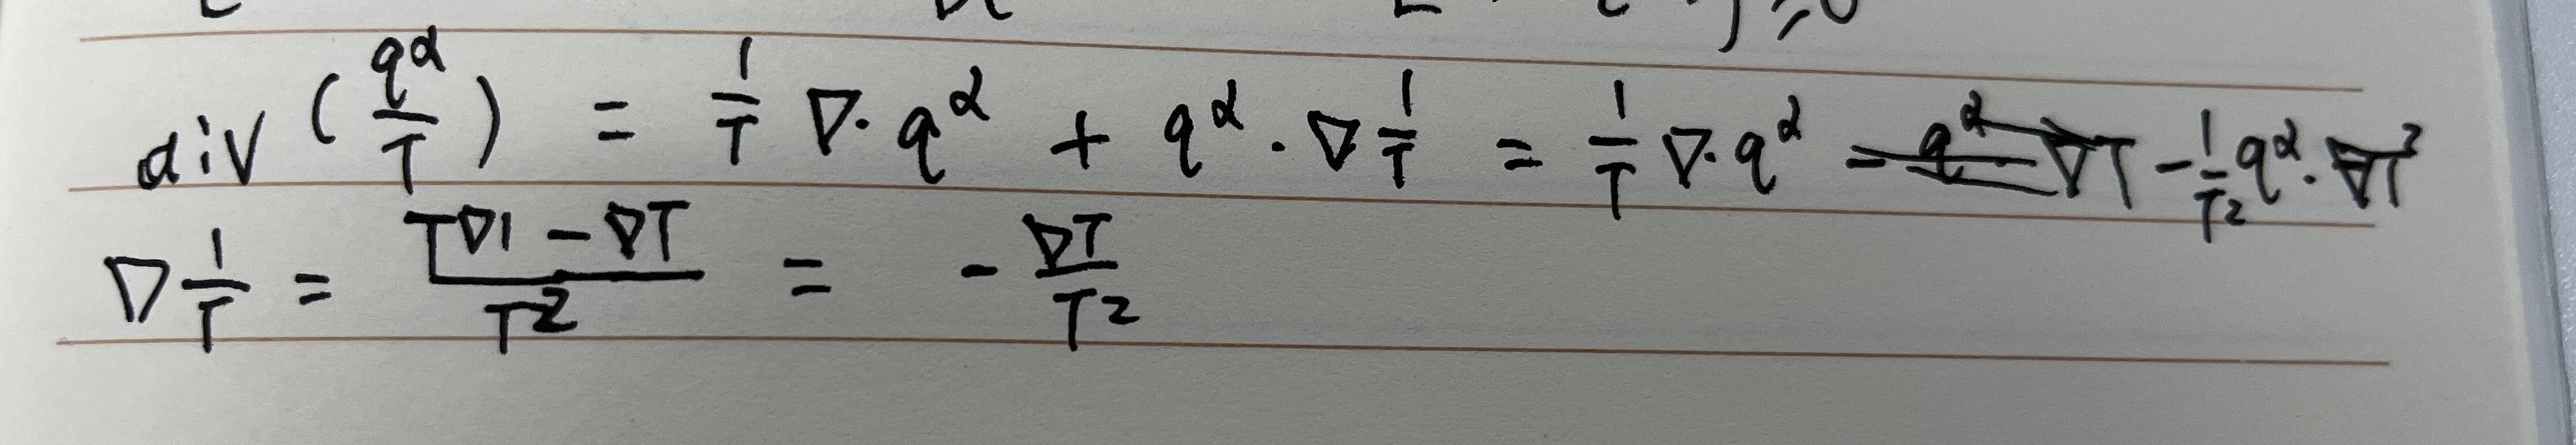 div (q^α/T) = 1/T ∇·q^α + q^α·∇ 1/T = 1/T ∇·q^α - 1/T² q^α·∇T
∇ 1/T = (T∇1 - ∇T)/T² = - ∇T/T²